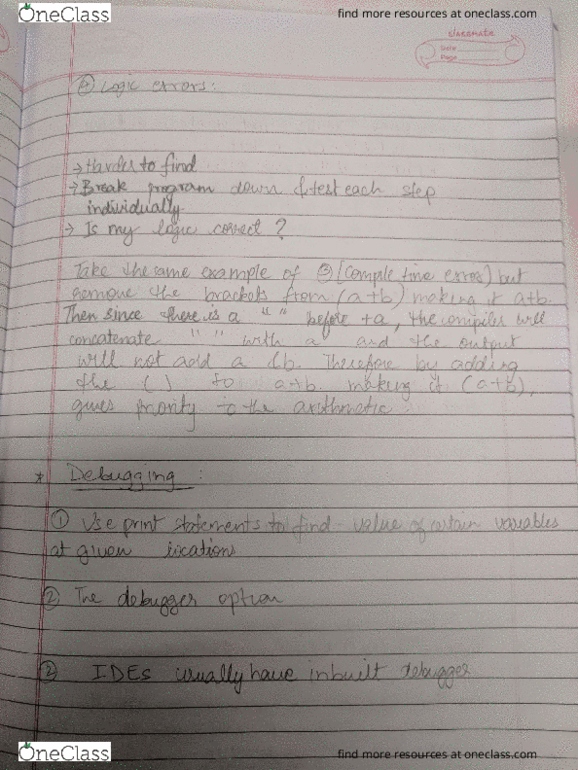 OneClass
find more resources at oneclass.com
Date
Page
Logic errors:
→ Harder to find
→ Break program down & test each step
individually
→ Is my logic correct?
Take the same example of ③ (Compile time error) but
remove the brackets from (a+b) making it a+b.
Then since there is a " " before +a, the compiler will
concatenate " " with a and the output
will not add a & b. Therefore by adding
the ( ) to a+b making it (a+b),
gives priority to the arithmetic.
* Debugging :
① Use print statements to find value of certain variables
at given locations
② The debugger option
② IDEs usually have inbuilt debugger
OneClass
find more resources at oneclass.com